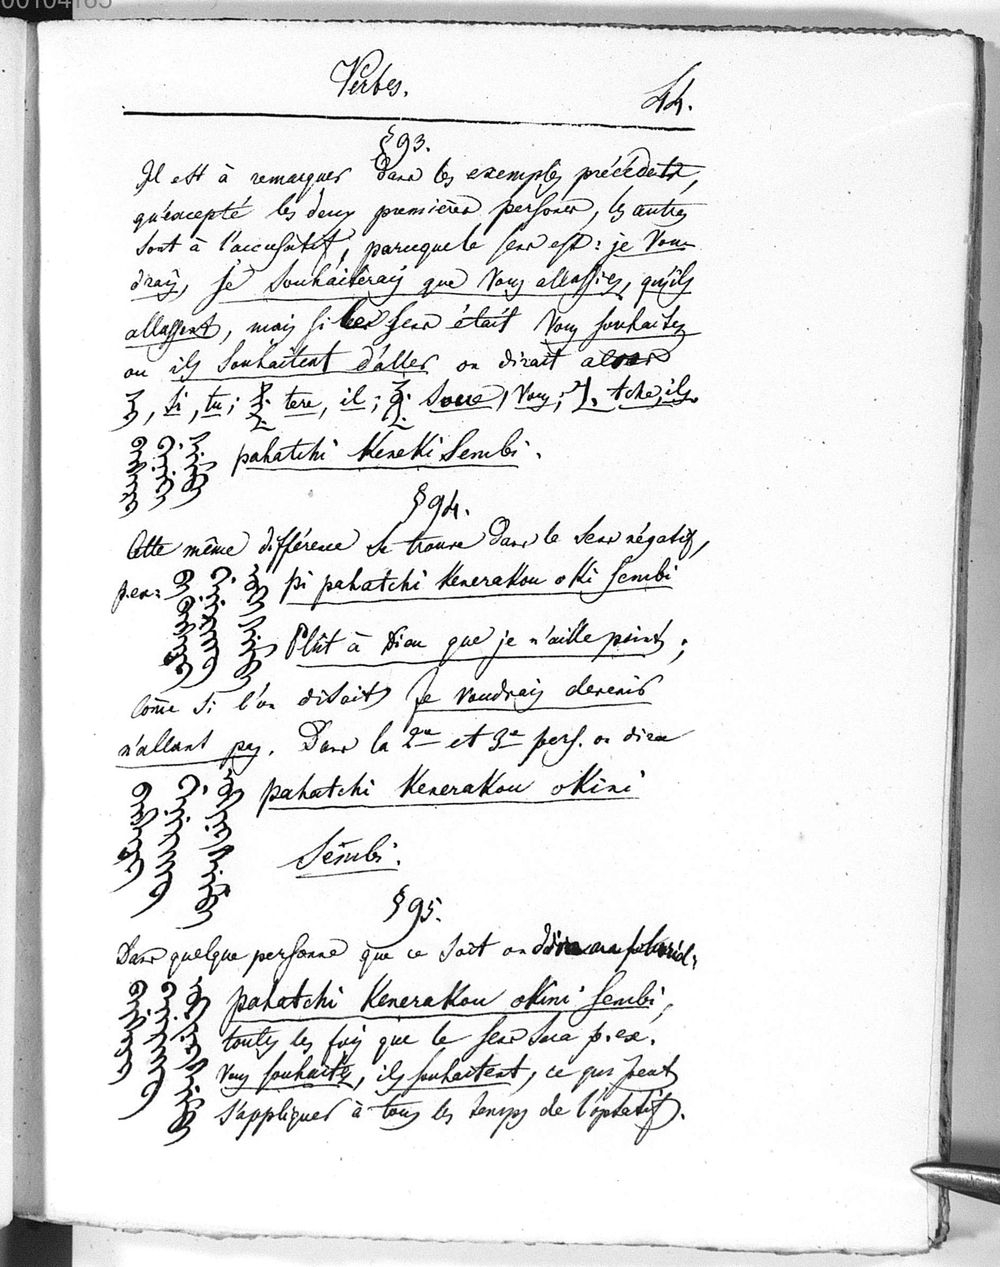 00104165
Verbes.
44.
§ 93.
Il est à remarquer dans les exemples précédents,
qu'excepté les deux premières persones, les autres
sont à l'accusatif, parceque le sens est: je vou-
drais, je souhaiterais que vous allassiez, qu'ils
allassent, mais si le sens était vous souhaitez
ou ils souhaitent d'aller on dirait alors
, si, tu; tere, il; soue, vous; tche, ils.
pahatchi keneki sembi.
§ 94.
Cette même différence se trouve dans le sens négatif,
p. ex: pi pahatchi kenerakou oki sembi
Plût à Dieu que je n'aille point;
Come si l'on disait je voudrais devenir
n'allant pas. Dans la 2de et 3e pers. on dira
pahatchi kenerakou okini
sembi.
§ 95.
Dans quelque personne que ce soit on dira au
pahatchi kenerakou okini sembi,
toutes les fois que le sens sera p. ex.
vous souhaitez, ils souhaitent, ce qui peut
s'appliquer à tous les temps de l'optatif.